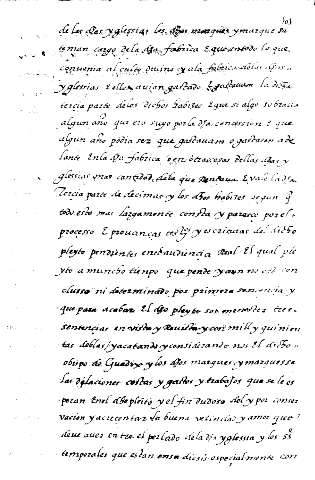 de las dhas yglesias los dhos marques y marquesa
tenian cargo dela dha fabrica E que en todo lo que
convenia al culto divino y ala fabrica delas dhas
yglesias Ellos avian gastado E gastavan la dha
tercia parte de los dichos habizes E que si algo sobrava
algun año que era suyo por la dha concesion E que
algun año podia ser que gastavan o gastasen ade
lante En la dha fabrica
yglesias mas cantidad dela que Rentava E vale la dha
tercia parte de diezmos y los dhos habizes segun q
todo esto mas largamente consta y paresce por el
processo E provanças y escrituras del dicho
pleyto pendientes en el audiencia Real El qual ple
yto a muncho tienpo que pende y aun no esta con
clusso ni determinado por primera sentencia y
que para acabar El dho pleyto son menester tres
sentencias en vista y Revista y con mill y quinien
tas doblas y acatando y considerando nos El dicho
obispo de Guadix y los dhos marques y marquessa
las dilaciones costas y gastos y trabajos que se les
peran En el dho pleito y el fin dudoso del y por conser
vacion y acrecentar la buena vecindad y amor que
deve aver entre el perlado de la dha yglesia y los ss
temporales que estan en su diocesis especialmente con